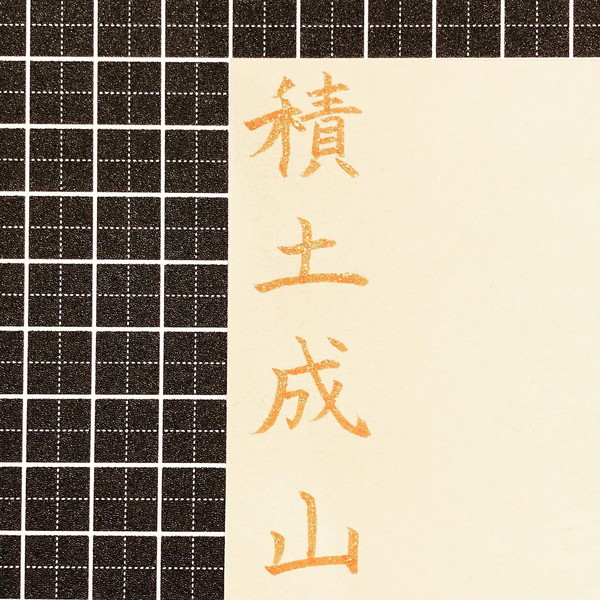 積土成山